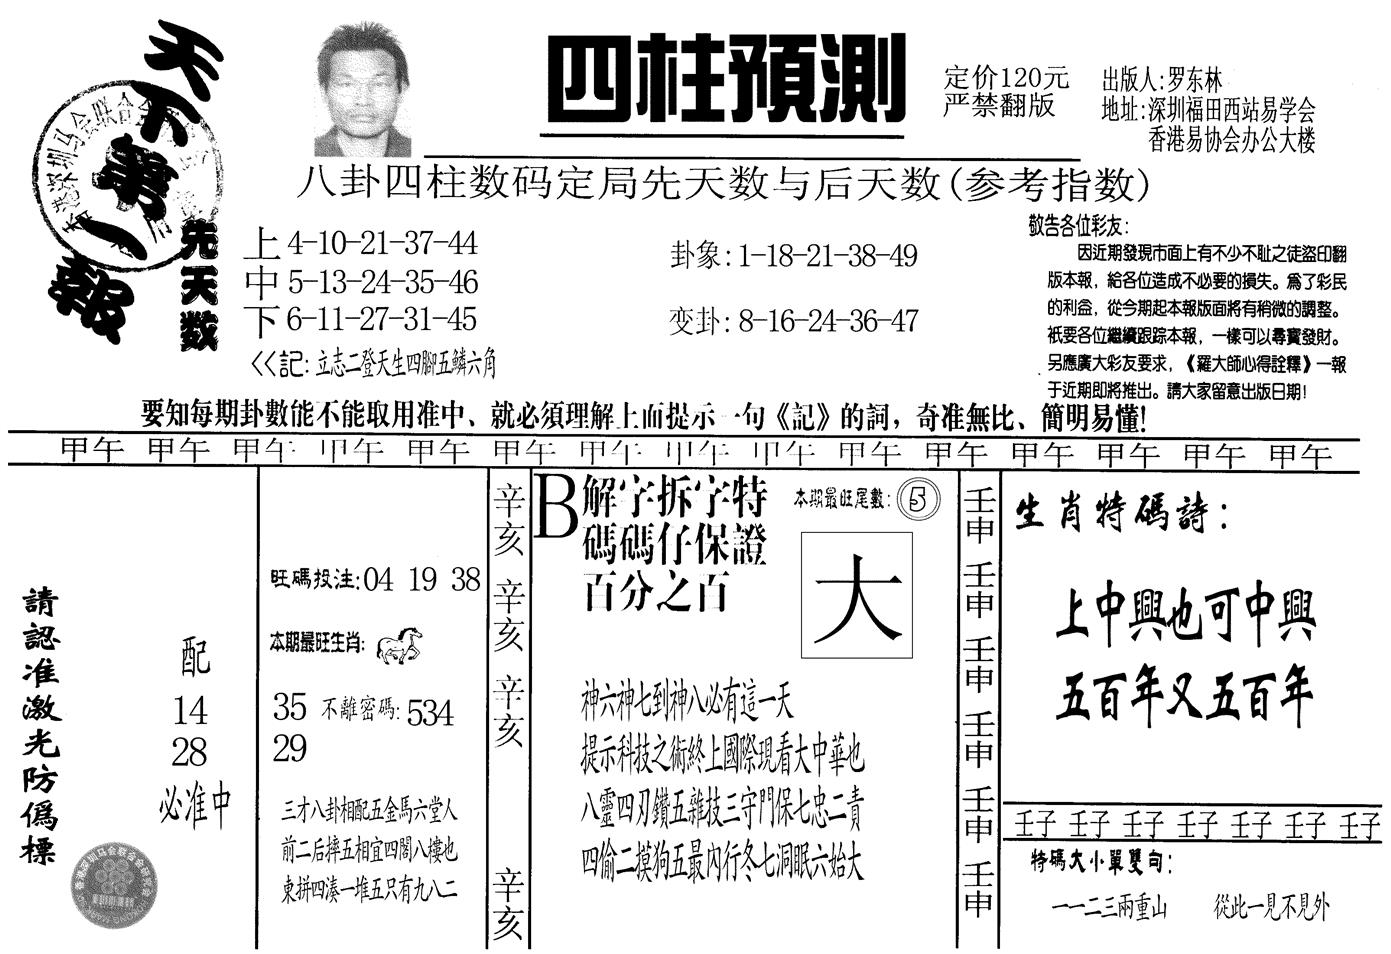 天下第一報
四柱預測
定价120元
严禁翻版
出版人:罗东林
地址:深圳福田西站易学会
香港易协会办公大楼
八卦四柱数码定局先天数与后天数(参考指数)
先天数
上 4-10-21-37-44
中 5-13-24-35-46
下 6-11-27-31-45
<<記:立志二登天生四腳五鱗六角
卦象:1-18-21-38-49
变卦:8-16-24-36-47
敬告各位彩友:
因近期發現市面上有不少不耻之徒盜印翻
版本報，給各位造成不必要的損失。爲了彩民
的利益，從今期起本報版面將有稍微的調整。
衹要各位繼續跟踪本報，一樣可以尋寶發財。
另應廣大彩友要求，《羅大師心得詮釋》一報
于近期即將推出。請大家留意出版日期!
要知每期卦數能不能取用准中、就必須理解上面提示一句《記》的詞，奇准無比、簡明易懂!
甲午 甲午 甲午 甲午 甲午 甲午 甲午 甲午 甲午 甲午 甲午 甲午 甲午 甲午 甲午
請認准激光防僞標
配
14
28
必准中
旺碼投注:04 19 38
本期最旺生肖:
35 不離密碼:534
29
三才八卦相配五金馬六堂人
前二后摔五相宜四閣八樓也
東拼四湊一堆五只有九八二
辛亥 辛亥 辛亥 辛亥
B 解字拆字特
碼碼仔保證
百分之百
本期最旺尾數:5
大
神六神七到神八必有這一天
提示科技之術終上國際現看大中華也
八靈四刃鑽五雜技三守門保七忠二責
四偷二摸狗五最內行冬七洞眠六始大
壬申 壬申 壬申 壬申 壬申 壬申
生肖特碼詩:
上中興也可中興
五百年又五百年
壬子 壬子 壬子 壬子 壬子 壬子 壬子
特碼大小單雙句:
一一二三兩重山 從此一見不見外